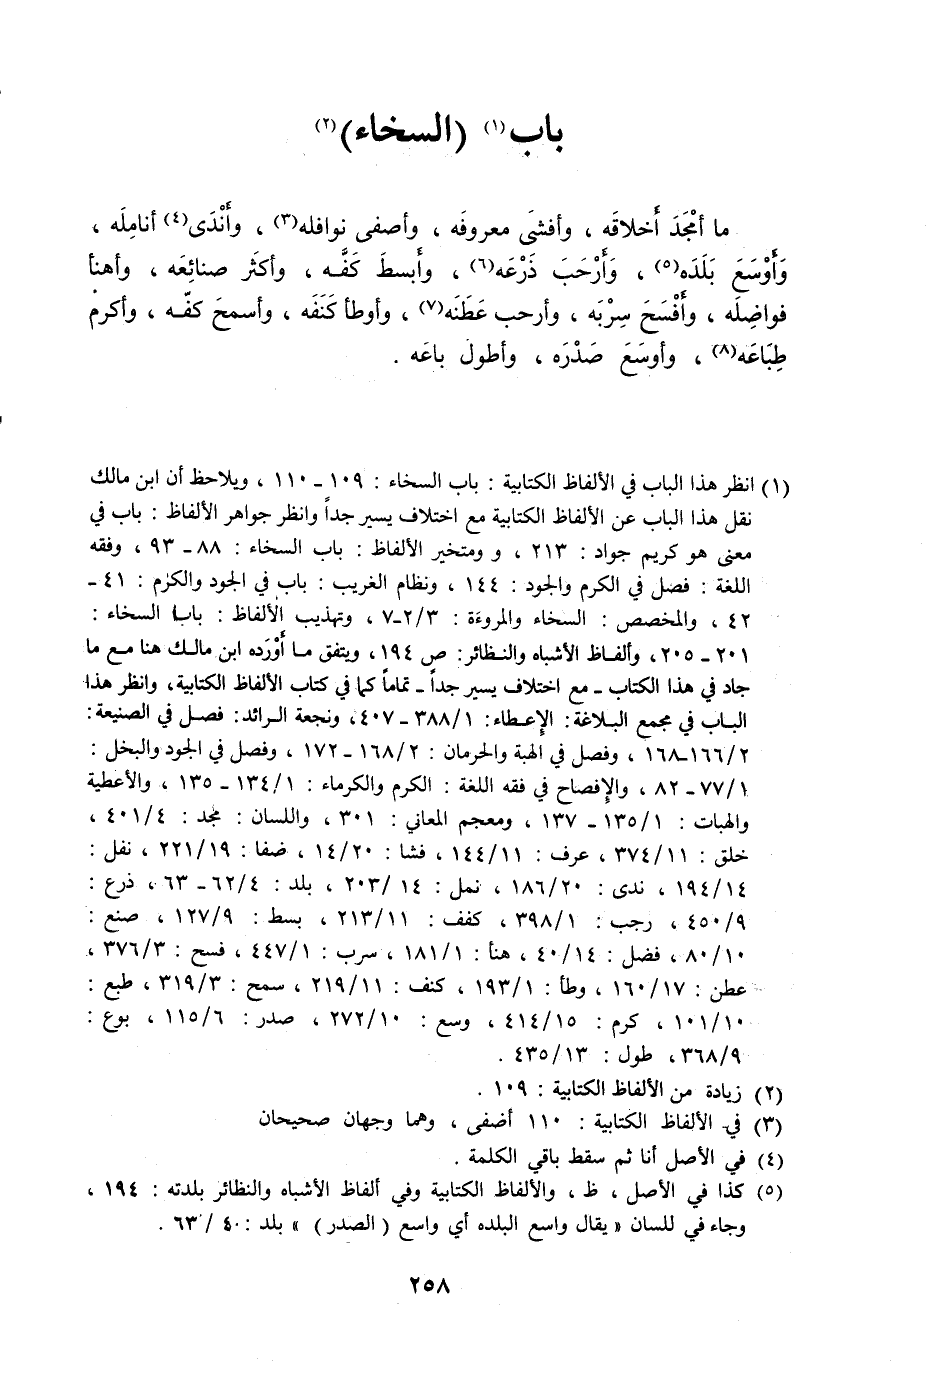 باب(١) (السخاء)(٢)
ما أمْجَدَ أَخلاقَه ، وأفشىَ معروفَه ، وأصفى نوافله(٣) ، وأَنْدَى(٤) أنامِلَه ،
وَأَوْسَعَ بَلَدَه(٥) ، وَأَرْحَبَ ذَرْعَه(٦) ، وأَبسطَ كَفَّه ، وأكثَر صنائِعَه ، وأهنأ
فواضِلَه ، وأَفْسَحَ سِرْبَه ، وأرحب عَطَنَه(٧) ، وأوطأ كَنَفَه ، وأسمحَ كفّه ، وأكرم
طِبَاعَه(٨) ، وأوسَعَ صَدْرَه ، وأطولَ باعَه .
(١) انظر هذا الباب في الألفاظ الكتابية : باب السخاء : ١٠٩ ـ ١١٠ ، ويلاحظ أن ابن مالك
نقل هذا الباب عن الألفاظ الكتابية مع اختلاف يسير جداً وانظر جواهر الألفاظ : باب في
معنى هو كريم جواد : ٢١٣ ، و ومتخير الألفاظ : باب السخاء : ٨٨ ـ ٩٣ ، وفقه
اللغة : فصل في الكرم والجود : ١٤٤ ، ونظام الغريب : باب في الجود والكرم : ٤١ ـ
٤٢ ، والمخصص : السخاء والمروءَة : ٢/٣ـ٧ ، وتهذيب الألفاظ : باب السخاء :
٢٠١ ـ ٢٠٥، وألفاظ الأشباه والنظائر: ص ١٩٤، ويتفق ما أَوْرَده ابن مالك هنا مع ما
جاد في هذا الكتاب ـ مع اختلاف يسير جداً ـ تماماً كما في كتاب الألفاظ الكتابية، وانظر هذا
الباب في مجمع البلاغة: الإعطاء: ٣٨٨/١ ـ ٤٠٧، ونجعة الرائد: فصل في الصنيعة:
١٦٦/٢ـ١٦٨ ، وفصل في الهبة والحرمان : ١٦٨/٢ ـ ١٧٢ ، وفصل في الجود والبخل :
٧٧/١ ـ ٨٢ ، والإفصاح في فقه اللغة : الكرم والكرماء : ١٣٤/١ ـ ١٣٥ ، والأعطية
والهبات : ١٣٥/١ ـ ١٣٧ ، ومعجم المعاني : ٣٠١ ، واللسان : مجد : ٤٠١/٤ ،
خلق : ٣٧٤/١١ ، عرف : ١٤٤/١١ ، فشا : ١٤/٢٠ ، ضفا : ٢٢١/١٩ ، نفل :
١٩٤/١٤ ، ندى : ١٨٦/٢٠ ، نمل : ٢٠٣/١٤ ، بلد : ٦٢/٤ـ ٦٣ ، ذرع :
٤٥٠/٩ ، رجب : ٣٩٨/١ ، كفف : ٢١٣/١١ ، بسط : ١٢٧/٩ ، صنع :
٨٠/١٠ ، فضل : ٤٠/١٤ ، هنأ : ١٨١/١ ، سرب : ٤٤٧/١ ، فسح : ٣٧٦/٣ ،
عطن : ١٦٠/١٧ ، وطأ : ١٩٣/١ ، كنف : ٢١٩/١١ ، سمح : ٣١٩/٣ ، طبع :
١٠١/١٠ ، كرم : ٤١٤/١٥ ، وسع : ٢٧٢/١٠ ، صدر : ١١٥/٦ ، بوع :
٣٦٨/٩، طول : ٤٣٥/١٣ .
(٢) زيادة من الألفاظ الكتابية : ١٠٩ .
(٣) في الألفاظ الكتابية : ١١٠ أضفى ، وهما وجهان صحيحان
(٤) في الأصل أنا ثم سقط باقي الكلمة .
(٥) كذا في الأصل ، ظ ، والألفاظ الكتابية وفي ألفاظ الأشباه والنظائر بلدته : ١٩٤ ،
وجاء في للسان « يقال واسع البلده أي واسع ( الصدر ) » بلد : ٤٠ / ٦٣ .
٢٥٨